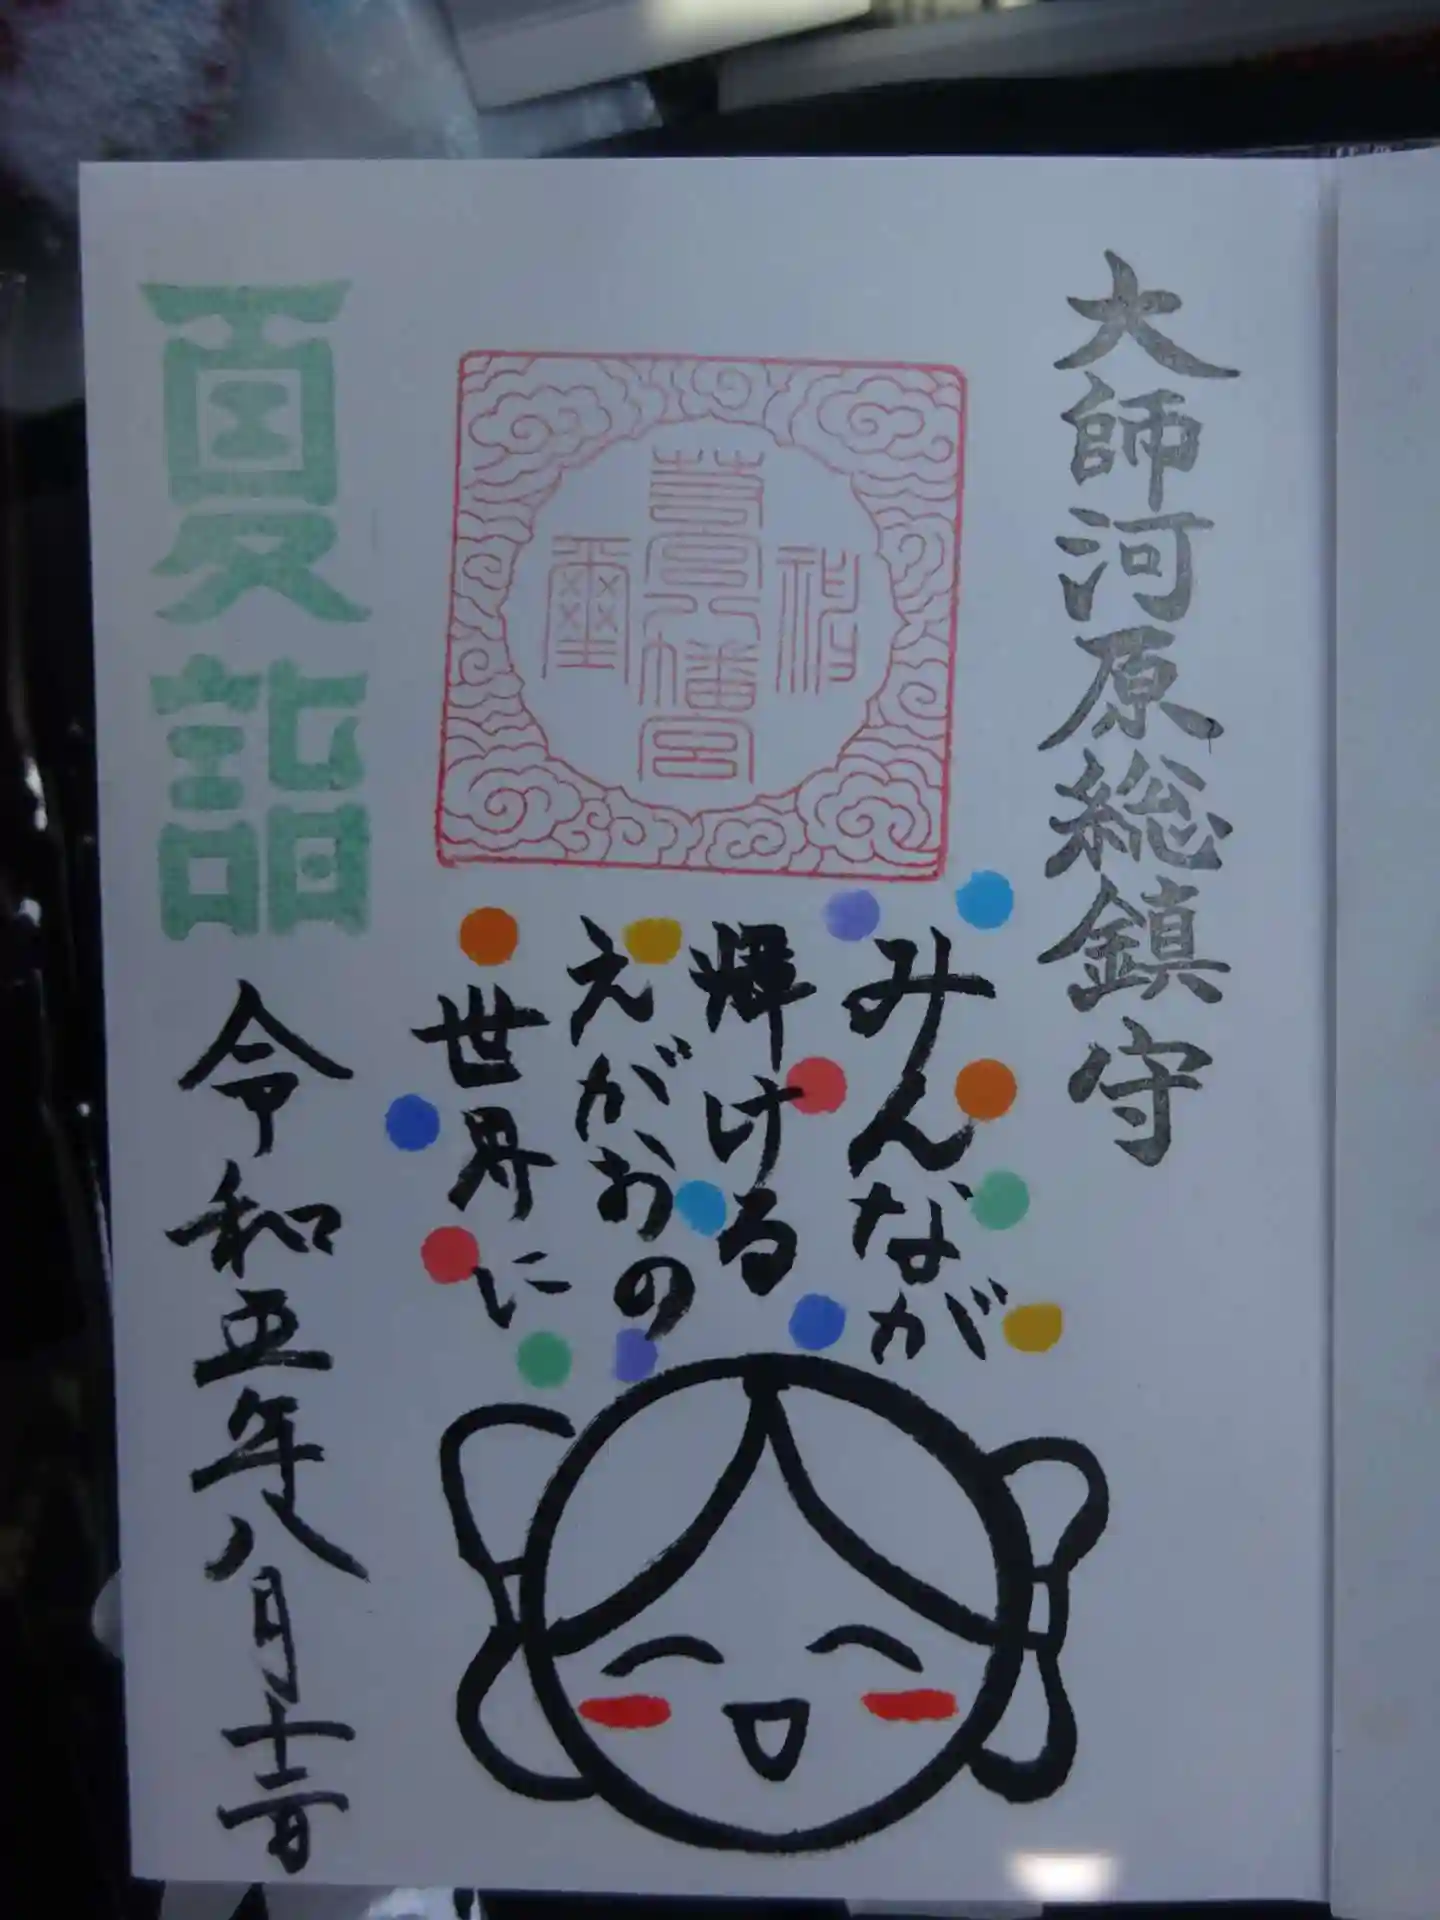 大師河原総鎮守
若宮八幡宮
神
璽
みんなが
輝ける
えがおの
世界に
夏詣
令和五年八月十二日